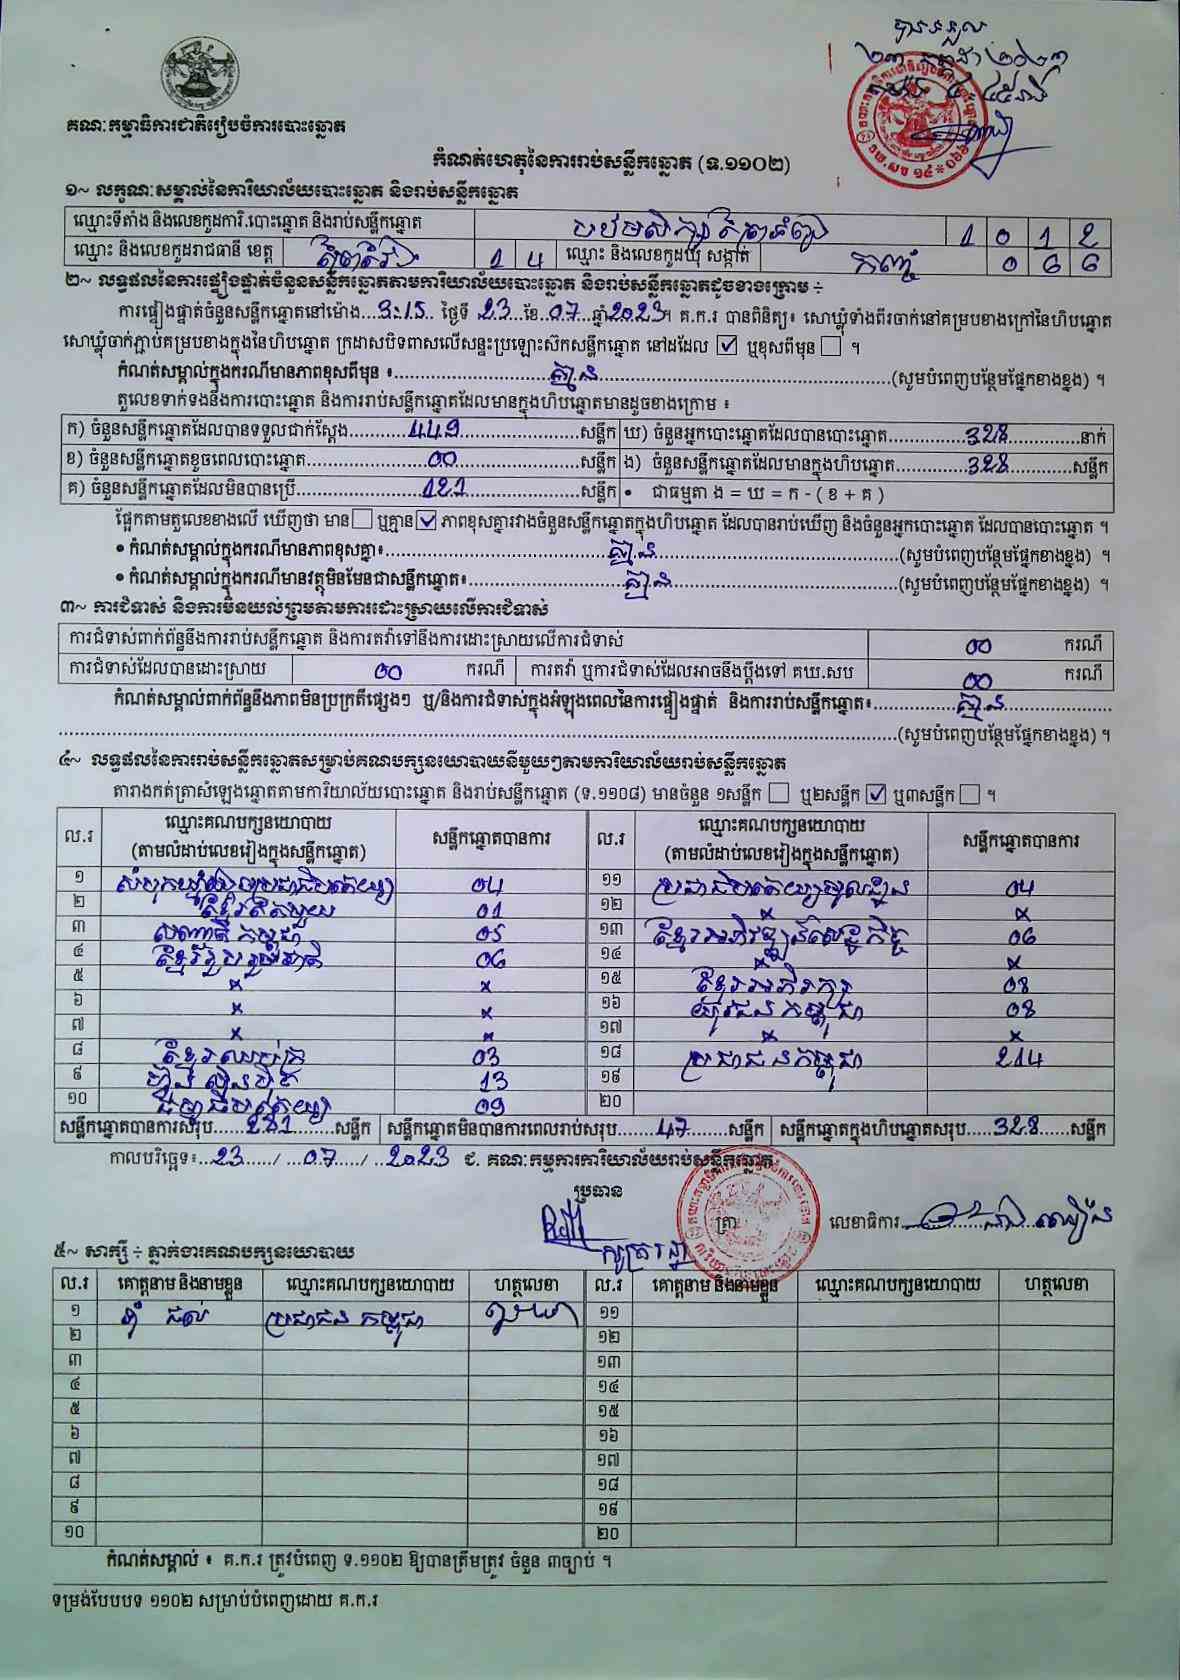 បានទទួល
២៣ កក្កដា ២០២៣
គណៈកម្មាធិការជាតិរៀបចំការបោះឆ្នោត
កំណត់ហេតុនៃការរាប់សន្លឹកឆ្នោត (ទ.១១០២)
១~ លក្ខណៈសម្គាល់នៃការិយាល័យបោះឆ្នោត និងរាប់សន្លឹកឆ្នោត
ឈ្មោះទីតាំង និងលេខកូដការិ.បោះឆ្នោត និងរាប់សន្លឹកឆ្នោត បឋមសិក្សា 1 0 1 2
ឈ្មោះ និងលេខកូដរាជធានី ខេត្ត ព្រៃវែង 1 4 ឈ្មោះ និងលេខកូដឃុំ សង្កាត់ កញ្ជ្រៀច 0 6 6
២~ លទ្ធផលនៃការផ្ទៀងផ្ទាត់ចំនួនសន្លឹកឆ្នោតតាមការិយាល័យបោះឆ្នោត និងរាប់សន្លឹកឆ្នោតដូចខាងក្រោម ÷
ការផ្ទៀងផ្ទាត់ចំនួនសន្លឹកឆ្នោតនៅម៉ោង...3:15.. ថ្ងៃទី 23...ខែ.07...ឆ្នាំ2023។ គ.ក.រ បានពិនិត្យ៖ សោឃ្លុំទាំងពីរចាក់នៅគម្របខាងក្រៅនៃហិបឆ្នោត
សោឃ្លុំចាក់ភ្ជាប់គម្របខាងក្នុងនៃហិបឆ្នោត ក្រដាសបិទពាសលើសន្ទះប្រឡោះស៊កសន្លឹកឆ្នោត នៅដដែល ☑ ឬខុសពីមុន ☐ ។
កំណត់សម្គាល់ក្នុងករណីមានភាពខុសពីមុន ៖ គ្មាន (សូមបំពេញបន្ថែមផ្នែកខាងខ្នង) ។
តួលេខទាក់ទងនឹងការបោះឆ្នោត និងការរាប់សន្លឹកឆ្នោតដែលមានក្នុងហិបឆ្នោតមានដូចខាងក្រោម ៖
ក) ចំនួនសន្លឹកឆ្នោតដែលបានទទួលជាក់ស្តែង 449 សន្លឹក ឃ) ចំនួនអ្នកបោះឆ្នោតដែលបានបោះឆ្នោត 328 នាក់
ខ) ចំនួនសន្លឹកឆ្នោតខូចពេលបោះឆ្នោត 00 សន្លឹក ង) ចំនួនសន្លឹកឆ្នោតដែលមានក្នុងហិបឆ្នោត 328 សន្លឹក
គ) ចំនួនសន្លឹកឆ្នោតដែលមិនបានប្រើ 121 សន្លឹក • ជាធម្មតា ង = ឃ = ក - ( ខ + គ )
ផ្អែកតាមតួលេខខាងលើ ឃើញថា មាន ☐ ឬគ្មាន ☑ ភាពខុសគ្នារវាងចំនួនសន្លឹកឆ្នោតក្នុងហិបឆ្នោត ដែលបានរាប់ឃើញ និងចំនួនអ្នកបោះឆ្នោត ដែលបានបោះឆ្នោត ។
• កំណត់សម្គាល់ក្នុងករណីមានភាពខុសគ្នា៖ គ្មាន (សូមបំពេញបន្ថែមផ្នែកខាងខ្នង) ។
• កំណត់សម្គាល់ក្នុងករណីមានវត្ថុមិនមែនជាសន្លឹកឆ្នោត៖ គ្មាន (សូមបំពេញបន្ថែមផ្នែកខាងខ្នង) ។
៣~ ការជំទាស់ និងការមិនយល់ព្រមតាមការដោះស្រាយលើការជំទាស់
ការជំទាស់ពាក់ព័ន្ធនឹងការរាប់សន្លឹកឆ្នោត និងការតវ៉ាទៅនឹងការដោះស្រាយលើការជំទាស់ 00 ករណី
ការជំទាស់ដែលបានដោះស្រាយ 00 ករណី ការតវ៉ា ឬការជំទាស់ដែលអាចនឹងប្តឹងទៅ គឃ.សប 00 ករណី
កំណត់សម្គាល់ពាក់ព័ន្ធនឹងភាពមិនប្រក្រតីផ្សេងៗ ឬ/និងការជំទាស់ក្នុងអំឡុងពេលនៃការផ្ទៀងផ្ទាត់ និងការរាប់សន្លឹកឆ្នោត៖ គ្មាន
(សូមបំពេញបន្ថែមផ្នែកខាងខ្នង) ។
៤~ លទ្ធផលនៃការរាប់សន្លឹកឆ្នោតសម្រាប់គណបក្សនយោបាយនីមួយៗតាមការិយាល័យរាប់សន្លឹកឆ្នោត
តារាងកត់ត្រាសំឡេងឆ្នោតតាមការិយាល័យបោះឆ្នោត និងរាប់សន្លឹកឆ្នោត (ទ.១១០៨) មានចំនួន ១សន្លឹក ☐ ឬ២សន្លឹក ☑ ឬ៣សន្លឹក ☐ ។
ល.រ ឈ្មោះគណបក្សនយោបាយ (តាមលំដាប់លេខរៀងក្នុងសន្លឹកឆ្នោត) សន្លឹកឆ្នោតបានការ ល.រ ឈ្មោះគណបក្សនយោបាយ (តាមលំដាប់លេខរៀងក្នុងសន្លឹកឆ្នោត) សន្លឹកឆ្នោតបានការ
១ សំបុកឃ្មុំសង្គមប្រជាធិបតេយ្យ 04 ១១ ប្រជាធិបតេយ្យមូលដ្ឋាន 04
២ ខ្មែរតែមួយ 01 ១២ x x
៣ សញ្ជាតិកម្ពុជា 05 ១៣ ខ្មែរអភិវឌ្ឍន៍សេដ្ឋកិច្ច 06
៤ ខ្មែររួបរួមជាតិ 06 ១៤ x x
៥ x x ១៥ ខ្មែរអភិរក្ស 08
៦ x x ១៦ យុវជនកម្ពុជា 08
៧ x x ១៧ x x
៨ ខ្មែរឈប់ក្រ 03 ១៨ ប្រជាជនកម្ពុជា 214
៩ ហ្វ៊ុនស៊ិនប៉ិច 13 ១៩
១០ ធម្មាធិបតេយ្យ 09 ២០
សន្លឹកឆ្នោតបានការសរុប 281 សន្លឹក សន្លឹកឆ្នោតមិនបានការពេលរាប់សរុប 47 សន្លឹក សន្លឹកឆ្នោតក្នុងហិបឆ្នោតសរុប 328 សន្លឹក
កាលបរិច្ឆេទ៖ 23 / 07 / 2023 ជ. គណៈកម្មការការិយាល័យរាប់សន្លឹកឆ្នោត
ប្រធាន
ត្រា លេខាធិការ
៥~ សាក្សី ÷ ភ្នាក់ងារគណបក្សនយោបាយ
ល.រ គោត្តនាម និងនាមខ្លួន ឈ្មោះគណបក្សនយោបាយ ហត្ថលេខា ល.រ គោត្តនាម និងនាមខ្លួន ឈ្មោះគណបក្សនយោបាយ ហត្ថលេខា
១ ប្រជាជនកម្ពុជា ១១
២ ១២
៣ ១៣
៤ ១៤
៥ ១៥
៦ ១៦
៧ ១៧
៨ ១៨
៩ ១៩
១០ ២០
កំណត់សម្គាល់ ៖ គ.ក.រ ត្រូវបំពេញ ទ.១១០២ ឱ្យបានត្រឹមត្រូវ ចំនួន ៣ច្បាប់ ។
ទម្រង់បែបបទ ១១០២ សម្រាប់បំពេញដោយ គ.ក.រ